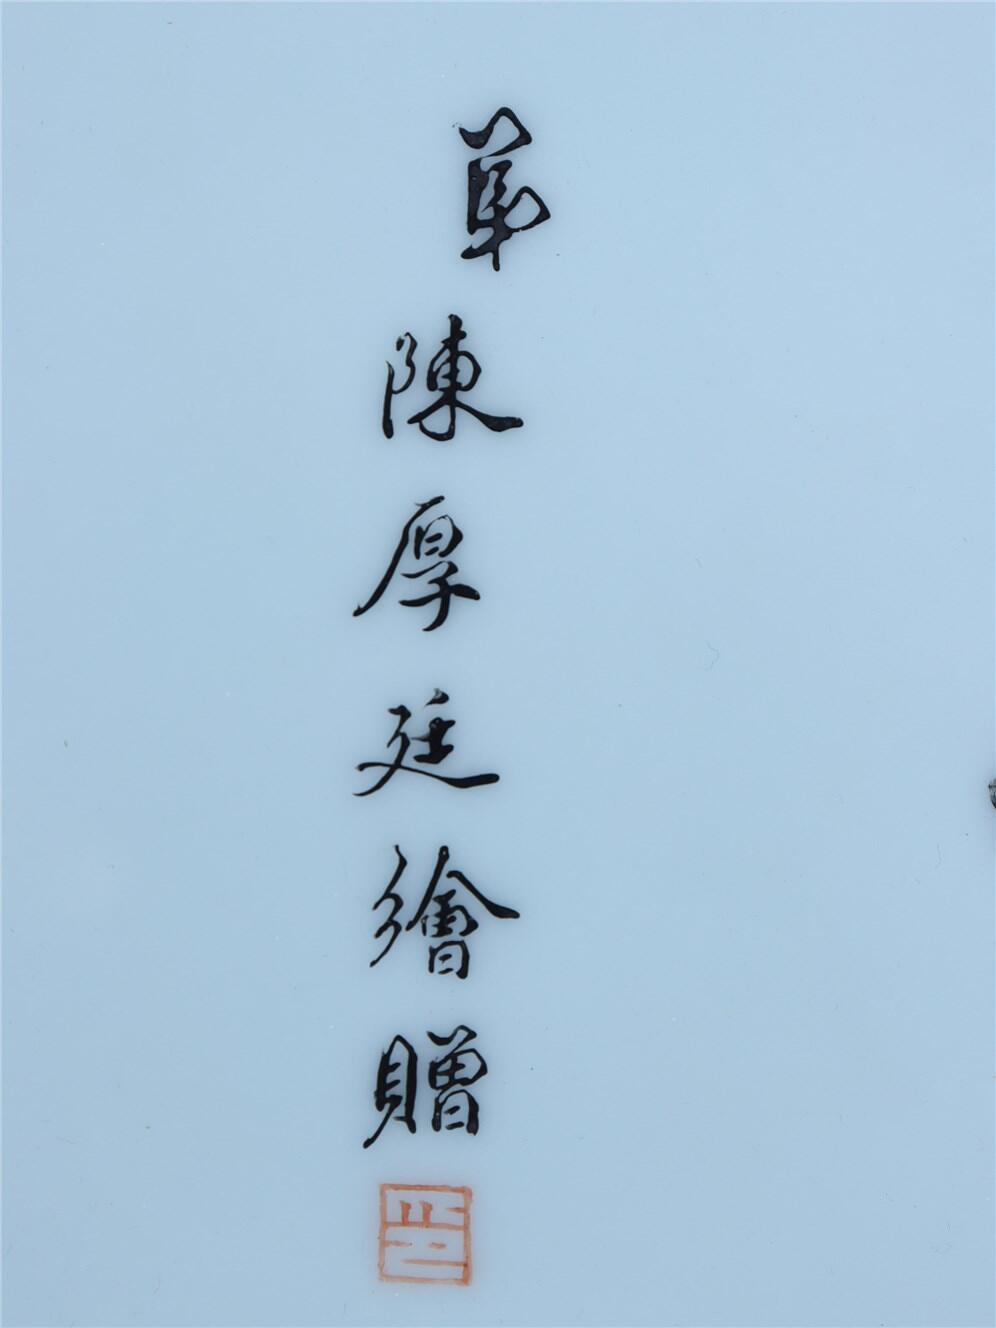 弟陳厚廷繪贈